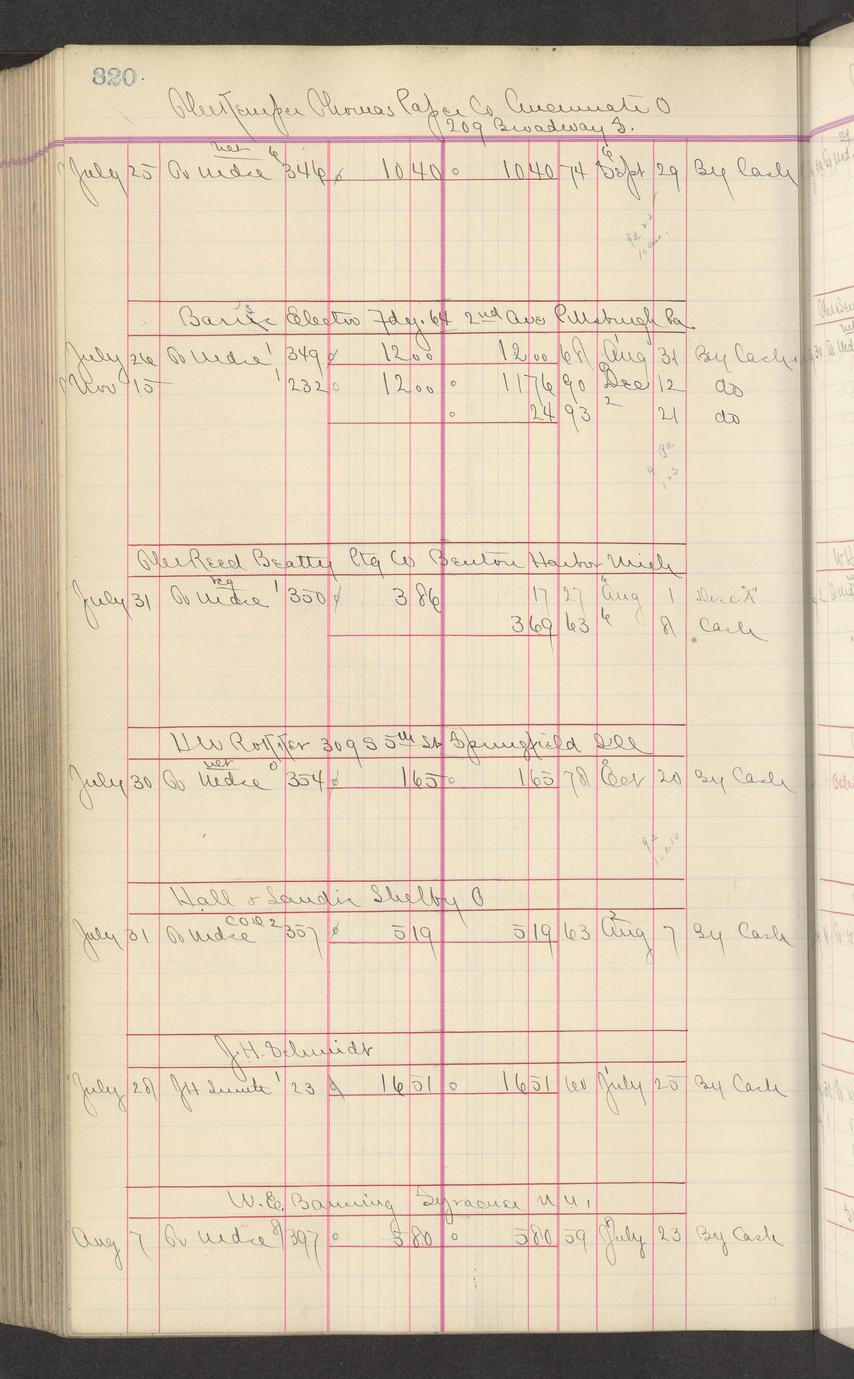 820.
Kemper Thomas Paper Co Cincinnati O
209 Broadway
net 6 6
July 25 To Mdse 346 1040 1040 74 Sept 29 By Cash
Electro Fdy. 64 2nd Ave Pittsburgh Pa
July 26 To Mdse 1 349 1200 1200 68 Aug 31 By Cash
Nov 15 1 232 1200 1176 90 Dec 12 do
24 93 2 21 do
Reed Beatty Ptg Co Benton Harbor Mich
reg
July 31 To Mdse 1 350 386 17 27 Aug 1
369 63 6 8 Cash
H W 309 S 5th St Springfield Ill
net 0
July 30 To Mdse 354 165 165 78 Oct 20 By Cash
Hall & Shelby O
COD 2 2
July 31 To Mdse 357 519 519 63 Aug 7 By Cash
J. H. Schmidt
July 28 JH 1 23 1651 1651 60 July 25 By Cash
W. E. Banning Syracuse N Y,
Aug 7 To Mdse 8 397 580 580 59 July 23 By Cash